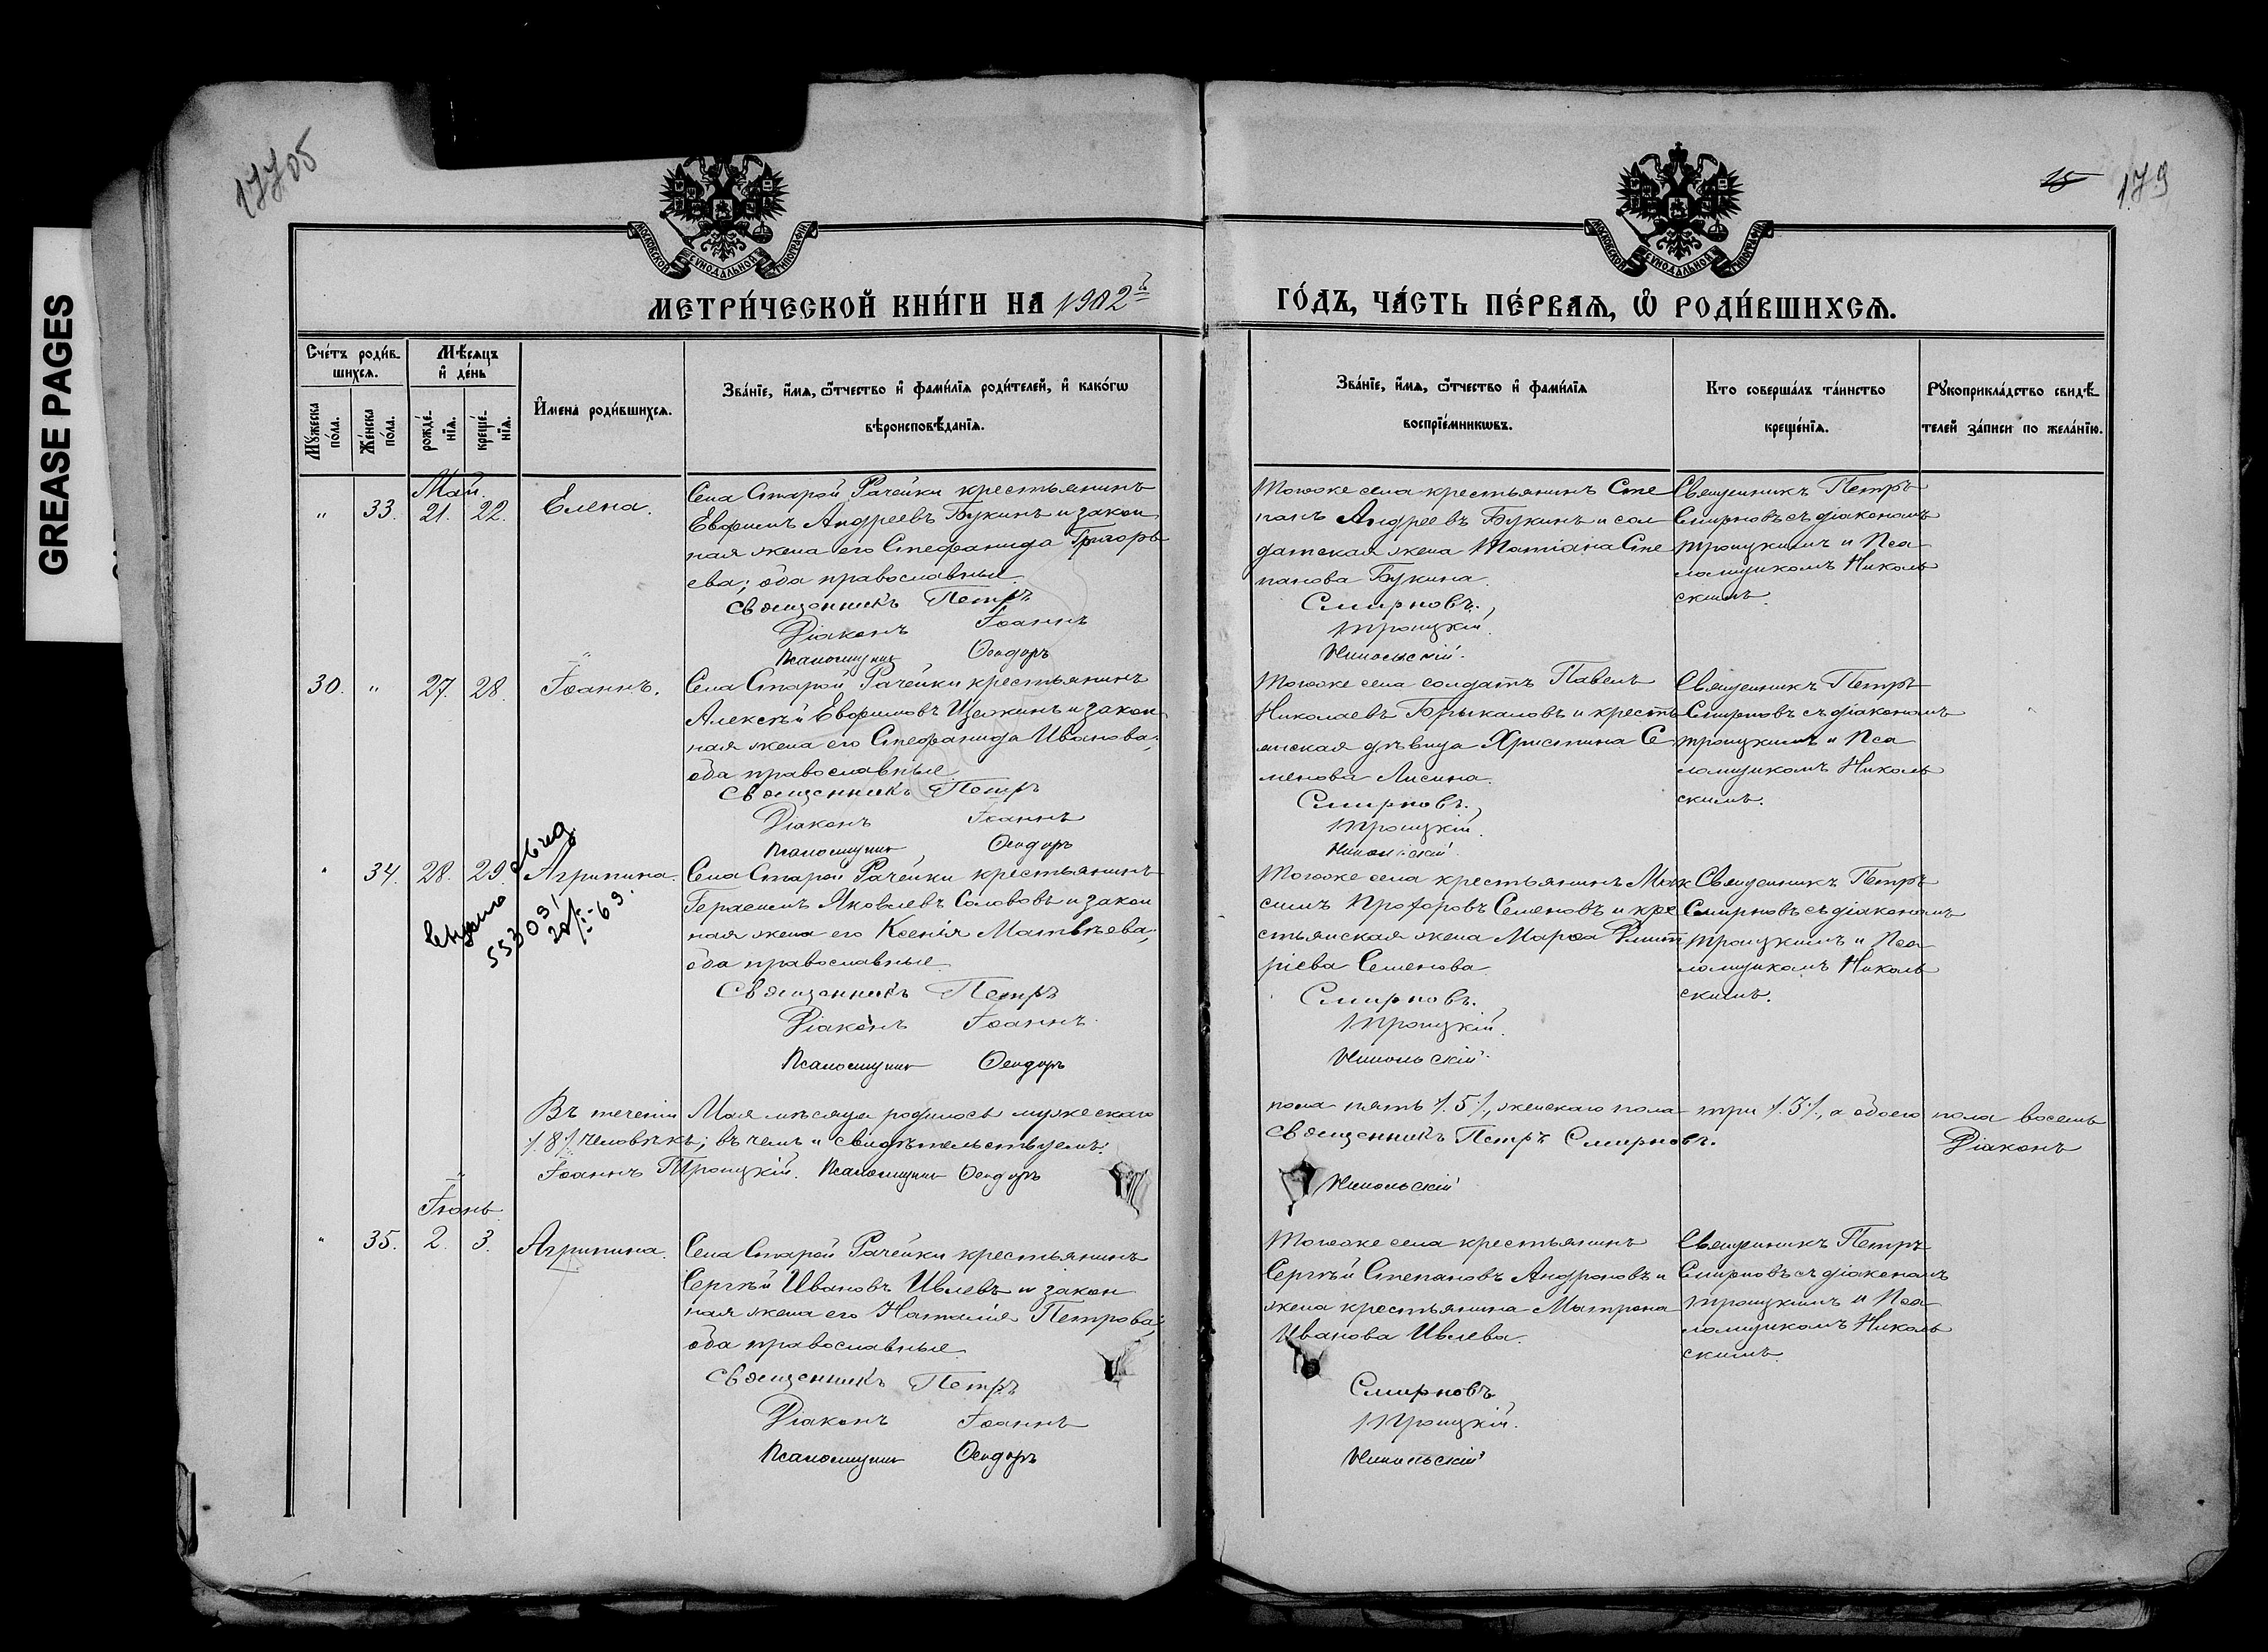 GREASE PAGES
17705
15 179
МОСКОВСКОЙ СѴНОДАЛЬНОЙ ТИПОГРАФІИ
МОСКОВСКОЙ СѴНОДАЛЬНОЙ ТИПОГРАФІИ
МЕТРИ́ЧЕСКОЙ КНИ́ГИ НА 1902й
ГО́ДЪ, ЧА́СТЬ ПЕ́РВАѦ, Ѡ҆ РОДИ́ВШИХСѦ.
Сче́тъ роди́в-
шихсѧ.
Мꙋ́жеска
по́ла.
Же́нска
по́ла.
Мѣ́сѧцъ
и҆ де́нь
рожде́-
нїѧ.
креще́-
нїѧ.
И҆мена̀ роди́вшихсѧ.
Зва́нїе, и҆́мѧ, ѻ҆́тчество и҆ фами́лїѧ роди́телей, и҆ како́гѡ
вѣроисповѣ́данїѧ.
Зва́нїе, и҆́мѧ, ѻ҆́тчество и҆ фами́лїѧ
воспрїе́мникѡвъ.
Кто̀ соверша́лъ та́инство
креще́нїѧ.
Рꙋкоприкла́дство свидѣ́-
телей за́писи по жела́нїю.
Май.
" 33. 21. 22. Елена.
Села Старой Рачейки крестьянинъ
Евфимъ Андреевъ Букинъ и закон
ная жена его Стефанида Григорь
ева; оба православные.
Священникъ Петръ
Діаконъ Іоаннъ
Псаломщикъ Ѳеодоръ
Тогоже села крестьянинъ Сте
панъ Андреевъ Букинъ и сол
датская жена Татіана Сте
панова Букина.
Смирновъ.,
Троицкій.
Никольскій.
Священникъ Петръ
Смирновъ съ діакономъ
Троицкимъ и Пса
ломщикомъ Николь
скимъ.
30. " 27. 28. Іоаннъ.
Села Старой Рачейки крестьянинъ
Алексѣй Евфимовъ Щелкинъ и закон
ная жена его Стефанида Иванова;
оба православные.
Священникъ Петръ
Діаконъ Іоаннъ
Псаломщикъ Ѳеодоръ
Тогоже села солдатъ Павелъ
Николаевъ Брыкаловъ и кресть
янская дѣвица Христина Се
менова Лисина.
Смирновъ.,
Троицкій.
Никольскій.
Священникъ Петръ
Смирновъ съ діакономъ
Троицкимъ и Пса
ломщикомъ Николь
скимъ.
" 34. 28. 29. Агрипина.
Села Старой Рачейки крестьянинъ
Герасимъ Яковлевъ Солововъ и закон
ная жена его Ксенія Матвѣева;
оба православные.
Священникъ Петръ
Діаконъ Іоаннъ.
Псаломщикъ Ѳеодоръ
Тогоже села крестьянинъ Мак
симъ Прохоровъ Семеновъ и кре
стьянская жена Марѳа Дмит
ріева Семенова.
Смирновъ.
Троицкій.
Никольскій.
Священникъ Петръ
Смирновъ съ діакономъ
Троицкимъ и Пса
ломщикомъ Николь
скимъ.
Въ теченіи Мая мѣсяца родилось мужескаго пола пять /.5./, женскаго пола три /.3./, а обоего пола восемь
/.8./ человѣкъ; въ чемъ и свидѣтельствуемъ: Священникъ Петръ Смирновъ. Діаконъ
Іоаннъ Троицкій. Псаломщикъ Ѳеодоръ Никольскій
Іюнь.
" 35. 2. 3. Агрипина.
Села Старой Рачейки крестьянинъ
Сергѣй Ивановъ Ивлевъ и закон
ная жена его Наталія Петрова;
оба православные.
Священникъ Петръ
Діаконъ Іоаннъ
Псаломщикъ Ѳеодоръ
Тогоже села крестьянинъ
Сергѣй Степановъ Андроновъ и
жена крестьянина Матрона
Иванова Ивлева.
Смирновъ
Троицкій.
Никольскій
Священникъ Петръ
Смирновъ съ діакономъ
Троицкимъ и Пса
ломщикомъ Николь
скимъ.